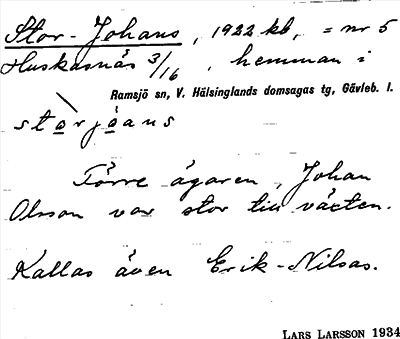 Stor-Johans, 1922 kb, = nr 5
Huskasnäs 3/16, hemman i
Ramsjö sn, V. Hälsinglands domsagas tg, Gävleb. l.
storjåans
Förre ägaren, Johan
Olsson var stor till växten.
Kallas även Erik-Nilsas.
LARS LARSSON 1934